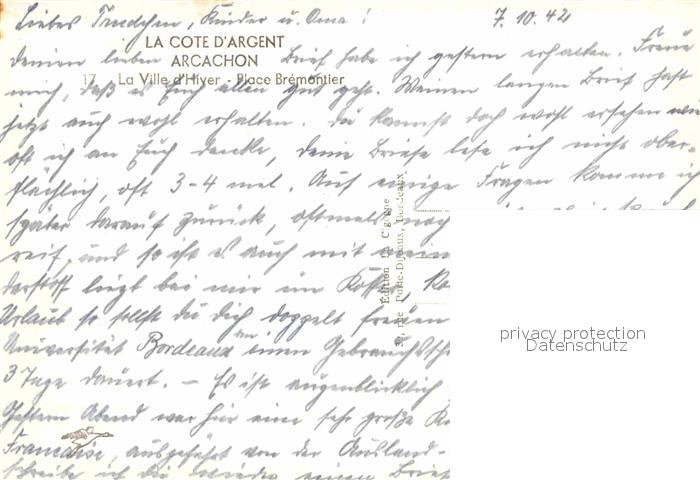 Liebes Trudchen, Kinder u. Oma! 7.10.42
LA COTE D'ARGENT
deinen lieben Brief habe ich gestern erhalten. Freue
ARCACHON
17. - La Ville d'Hiver - Place Brémontier
mich, daß es Euch allen gut geht. Meinen langen Brief hast
jetzt auch wohl erhalten. Du kannst doch wohl ersehen wie
oft ich an Euch denke, deine Briefe lese ich nicht ober-
flächlich, oft 3-4 mal. Auf einige Fragen komme ich
später darauf zurück, oftmals noch
reif, und so ist es auch mit
liegt bei mir im Koffer,
Urlaub so sollst du dich doppelt freuen
Universität Bordeaux einen
3 Tage dauert. - Es ist augenblicklich
Gestern Abend war hier eine sehr große
Francaise, ausgeführt von der Ausland-
schreibe ich dir wieder einen Brief
Edition La Cigogne
rue Porte-Dijeaux, Bordeaux
privacy protection
Datenschutz